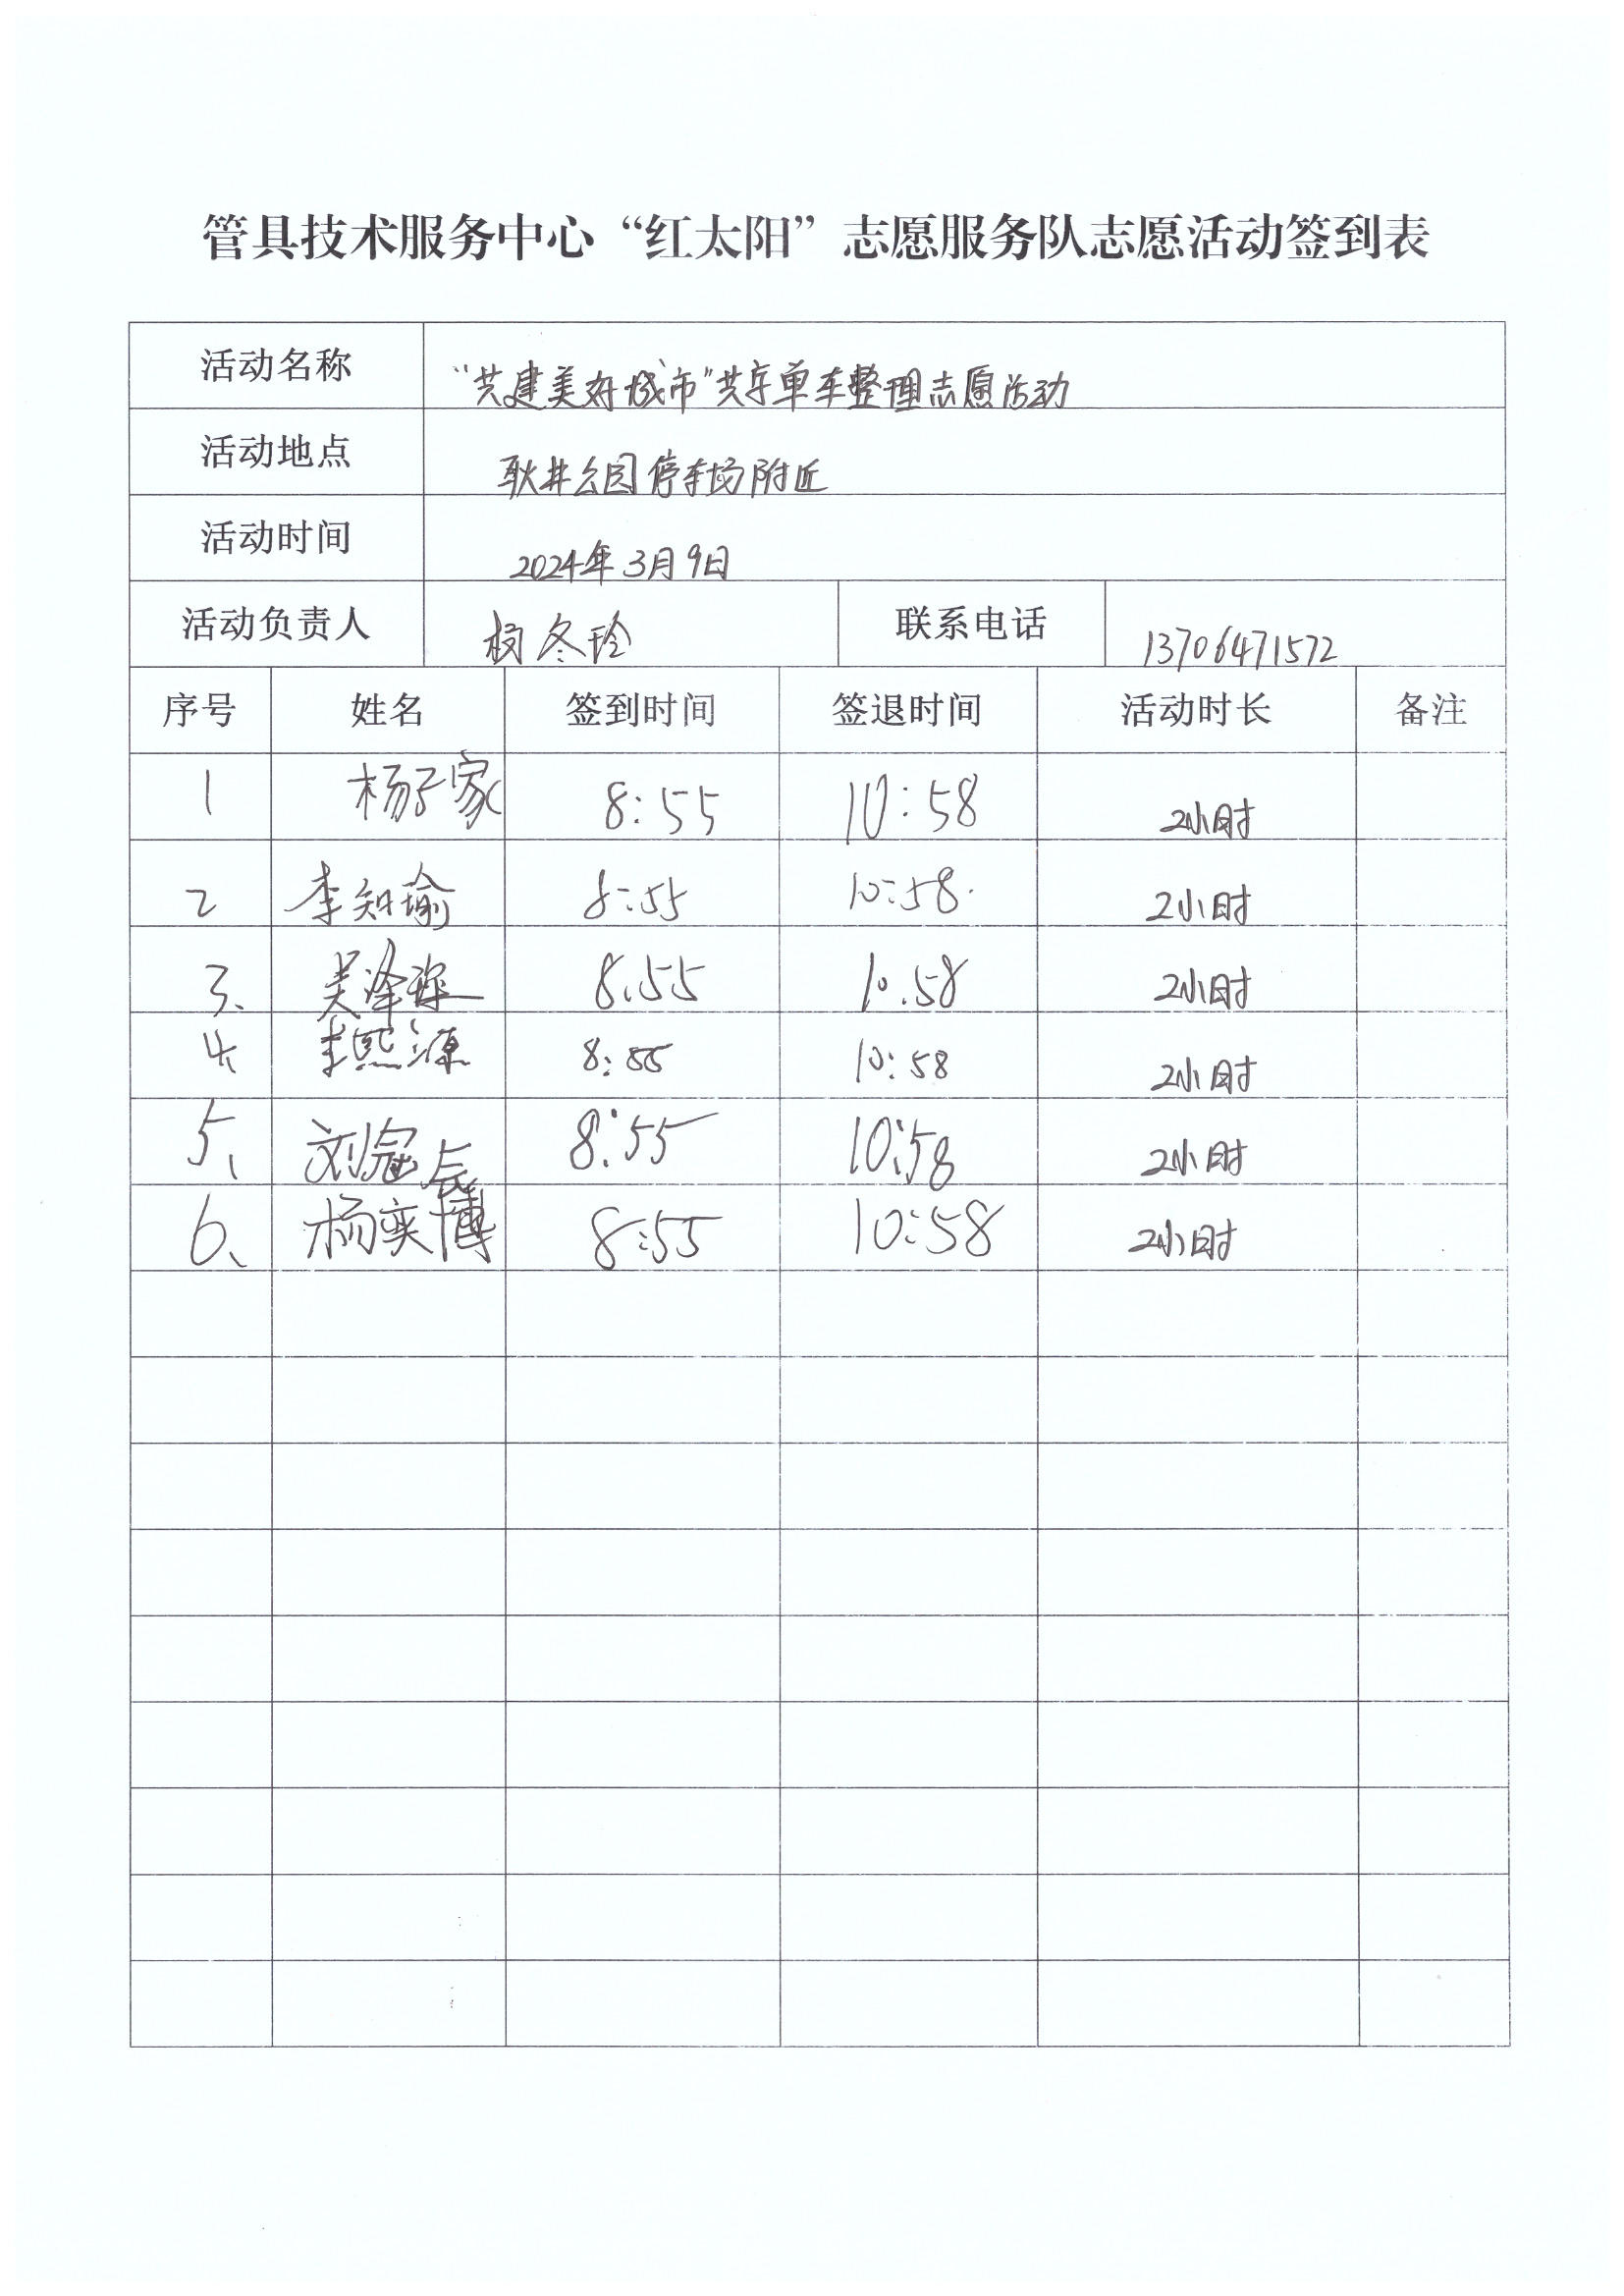 管具技术服务中心“红太阳”志愿服务队志愿活动签到表
活动名称 “共建美好城市”共享单车整理志愿活动
活动地点 耿井公园停车场附近
活动时间 2024年3月9日
活动负责人 杨冬玲 联系电话 13706471572
序号 姓名 签到时间 签退时间 活动时长 备注
1 杨子家 8:55 10:58 2小时
2 李知瑜 8:55 10:58. 2小时
3、 吴泽 8.55 10.58 2小时
4、 李熙源 8:55 10:58 2小时
5、 刘冠辰 8:55 10:58 2小时
6、 杨奕博 8:55 10:58 2小时